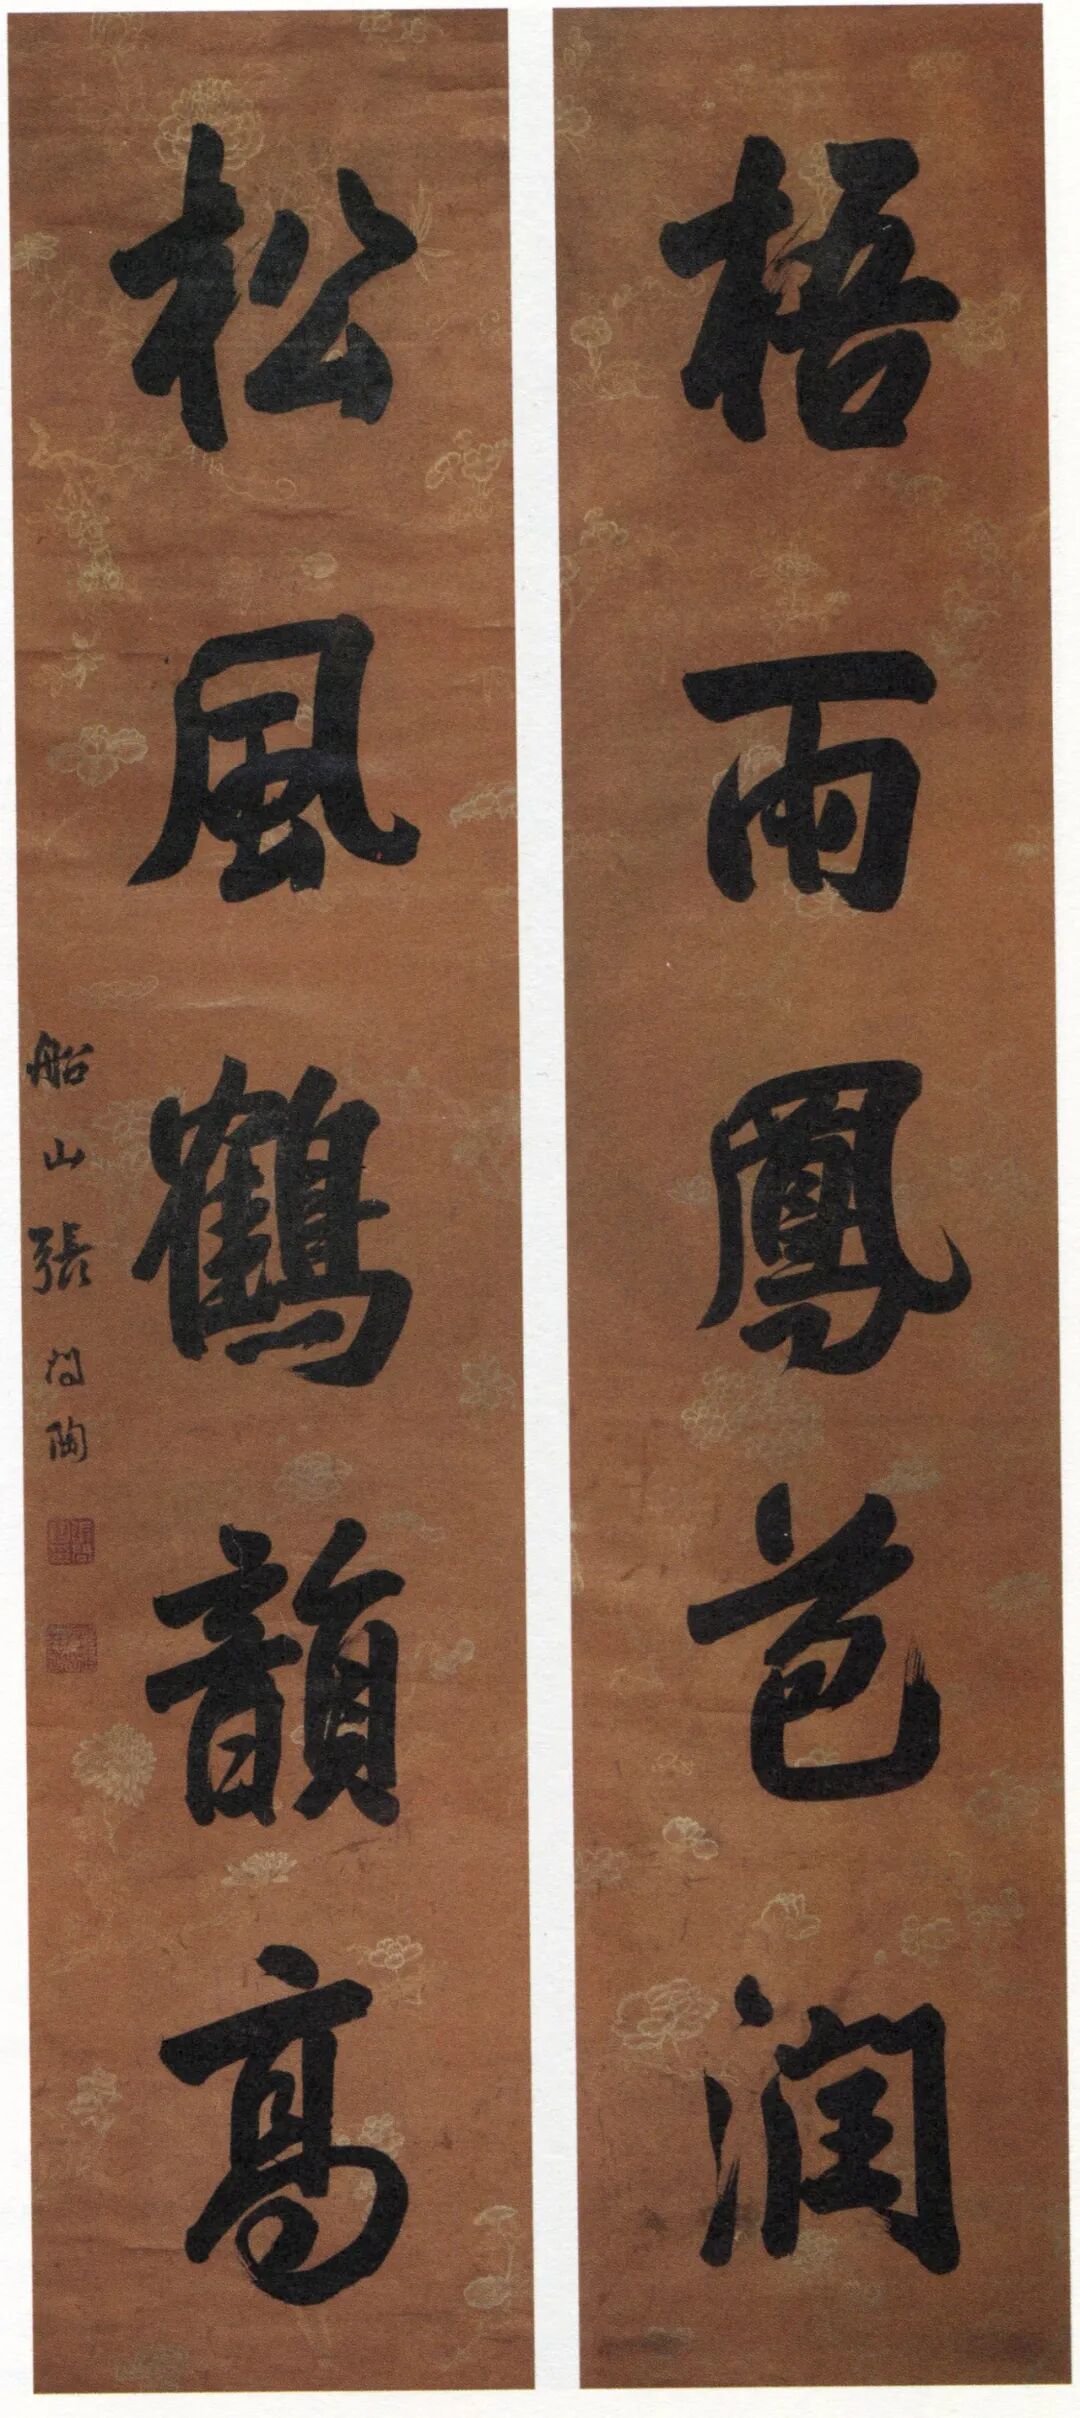 梧雨鳳苞潤
松風鶴韻高
船山張問陶